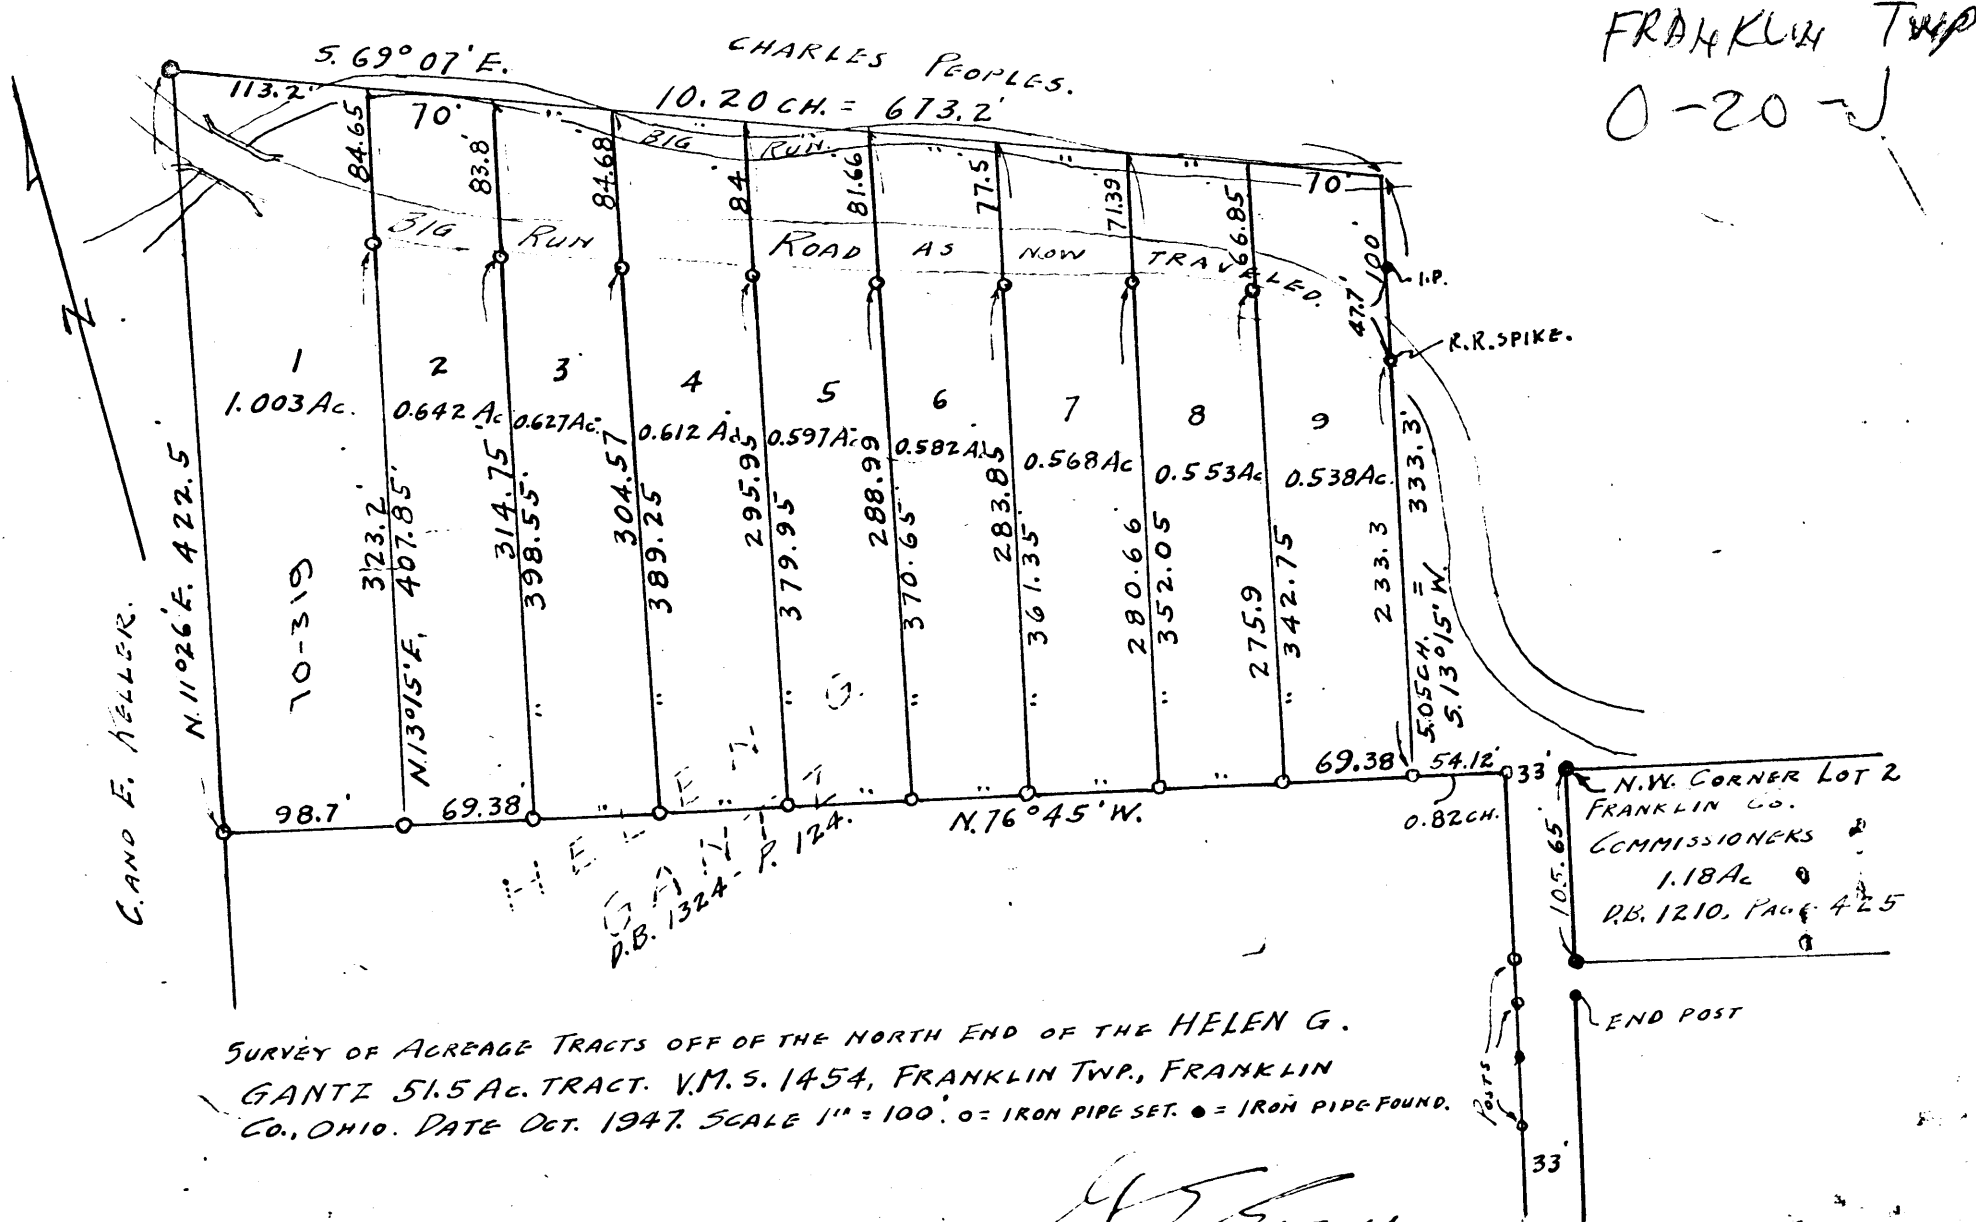 FRANKLIN TWP
0-20-J
CHARLES PEOPLES.
S. 69° 07' E.
10.20 CH. = 673.2'
113.2'
70'
"
"
"
"
"
70'
BIG RUN.
84.65
83.8'
84.68
84'
81.66
77.5'
71.39
66.85
100'
47.7'
I.P.
R.R. SPIKE.
BIG RUN ROAD AS NOW TRAVELED.
Z
1
1.003 Ac.
2
0.642 Ac
3
0.627 Ac.
4
0.612 Ac.
5
0.597 Ac.
6
0.582 Ac.
7
0.568 Ac
8
0.553 Ac
9
0.538 Ac.
C. AND E. KELLER.
N. 11° 26' E. 422.5'
10-319
323.2'
N. 13° 15' E, 407.85'
314.75'
398.55'
"
304.57
389.25
"
295.95
379.95
"
288.99
370.65'
"
283.85
361.35'
"
280.66
352.05
"
275.9
342.75
"
233.3
5.05 CH. = 333.3'
S. 13° 15' W.
98.7'
69.38'
"
"
"
N. 76° 45' W.
"
"
69.38
54.12'
33'
0.82 CH.
HELEN G.
GANTZ
D.B. 1324 - P. 124.
N.W. CORNER LOT 2
FRANKLIN CO.
COMMISSIONERS
1.18 Ac
D.B. 1210, PAGE 425
105.65'
END POST
POSTS
33'
SURVEY OF ACREAGE TRACTS OFF OF THE NORTH END OF THE HELEN G.
GANTZ 51.5 Ac. TRACT. V.M.S. 1454, FRANKLIN TWP., FRANKLIN
CO., OHIO. DATE OCT. 1947. SCALE 1" = 100'. o = IRON PIPE SET. ● = IRON PIPE FOUND.